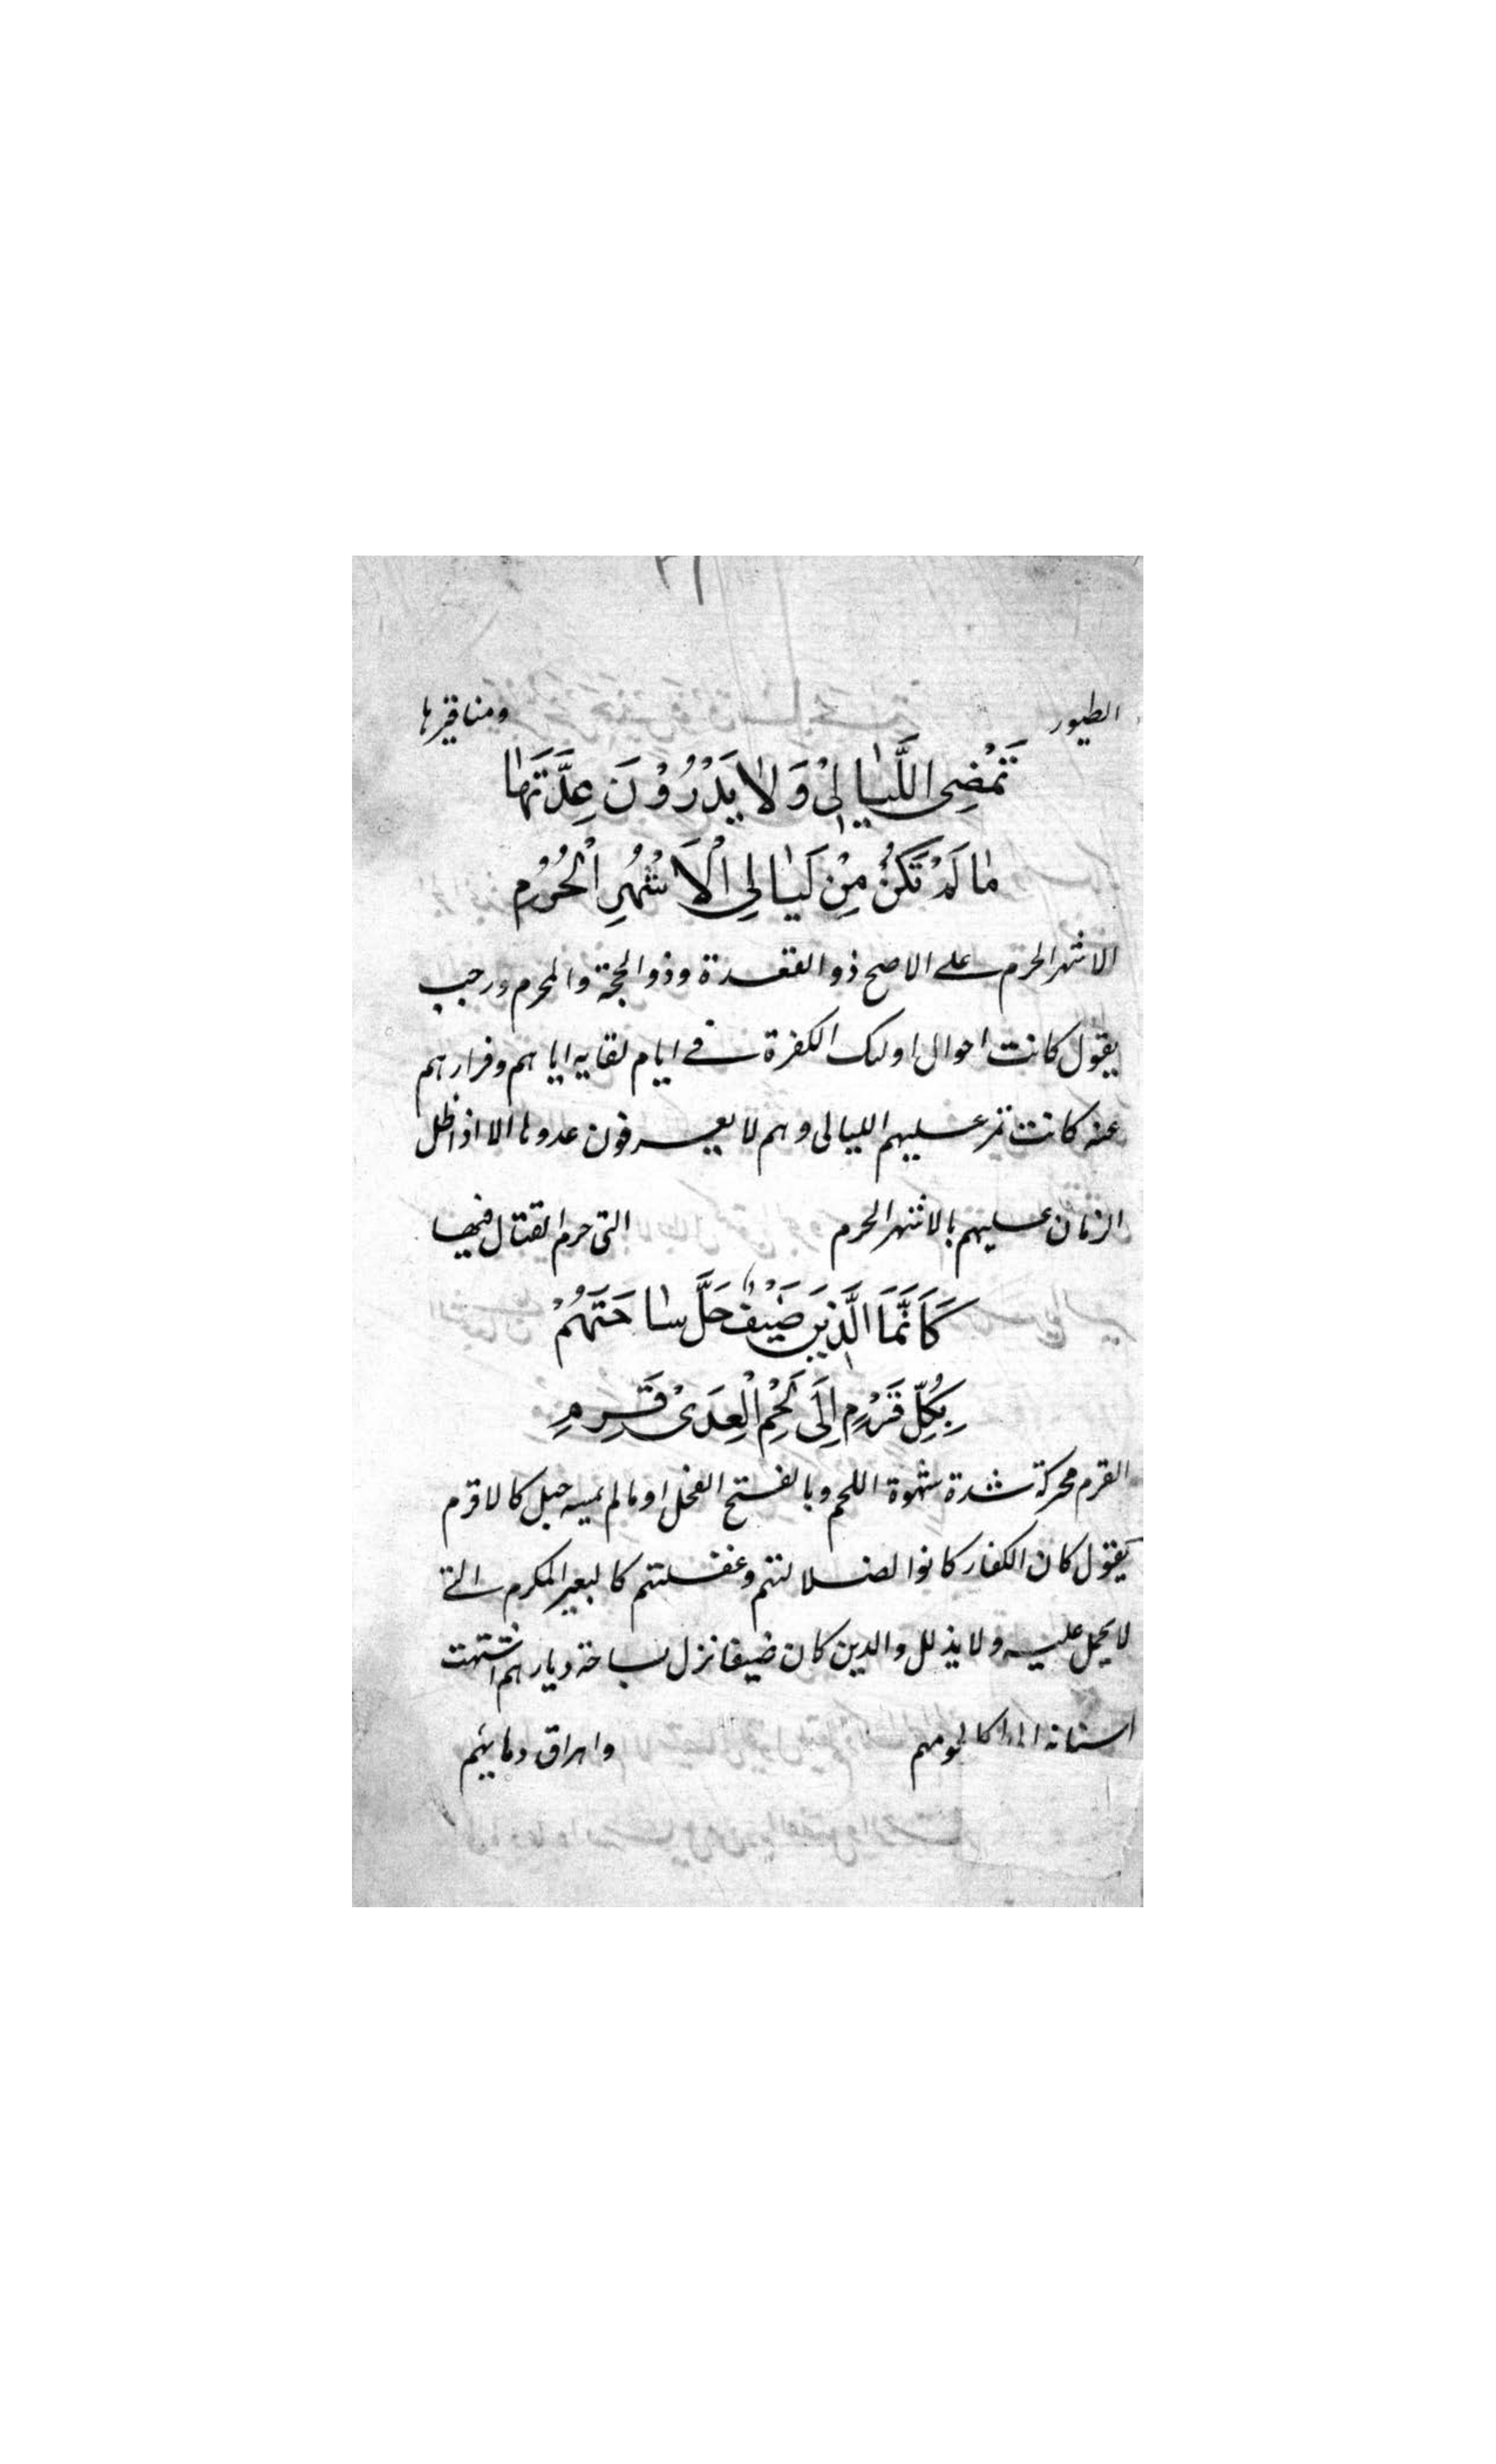 الطيور ومناقيرها
تَمْضِى اللَّيَالِىْ وَلَا يَدْرُوْنَ عِدَّتَهَا
مَا لَمْ تَكُنْ مِنْ لَيَالِى الْاَشْهُرِ الْحُرُمِ
الاشهر الحرم على الاصح ذو القعدة وذو الحجة والمحرم ورجب
يقول كانت احوال اولىك الكفرة فى ايام لقايه اياهم وفرارهم
عنه كانت تمر عليهم الليالى وهم لا يعرفون عدوها الا اذا ظل
الزمان عليهم بالاشهر الحرم التى حرم القتال فيها
كَاَنَّمَا الَّذِينَ ضَيْفٌ حَلَّ سَاحَتَهُمْ
بِكُلِّ قَرْمٍ اِلَى لَحْمِ الْعِدَىْ قَرِمِ
القرم محركة شدة شهوة اللحم وبالفتح الفحل او ما لم يمسه حبل كالاقرم
يقول كان الكفار كانوا لضلالتهم وغفلتهم كالبعير المكرم التى
لا يحمل عليه ولا يذلل والدين كان ضيفا نزل بساحة ديارهم اشتهت
اسنانه الى اكل لحومهم واهراق دمايهم